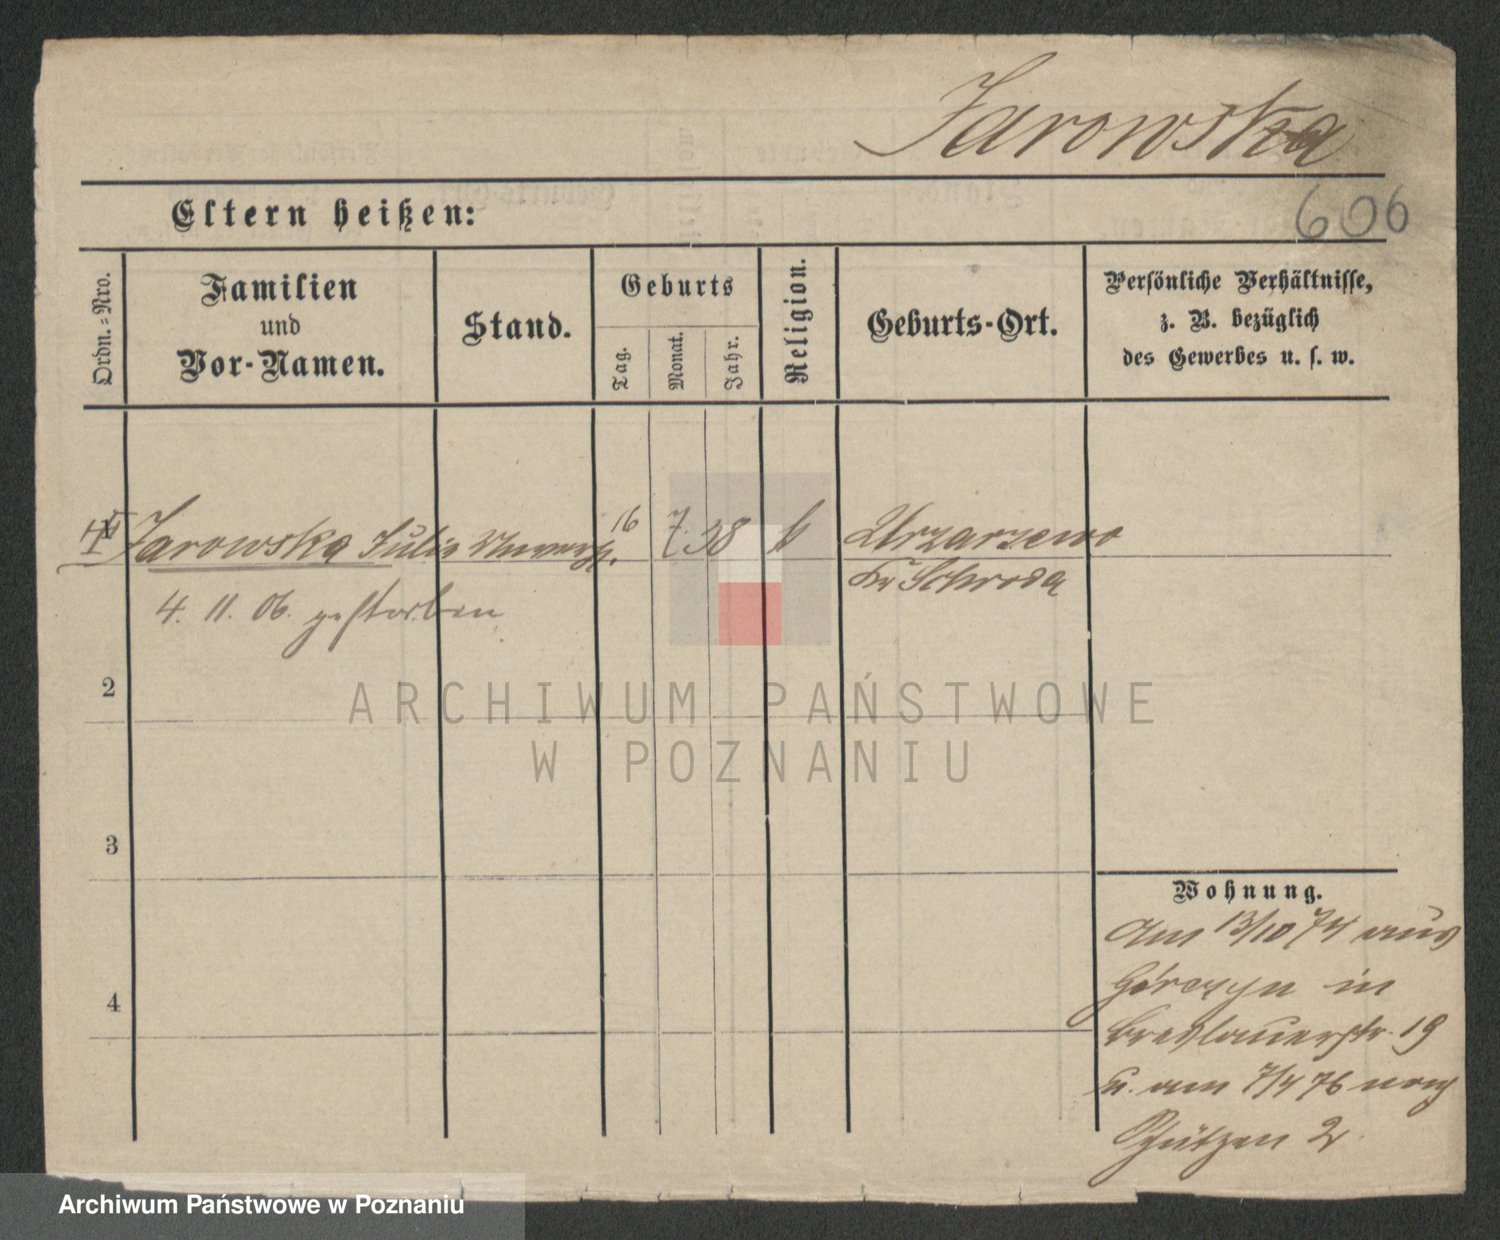 Jarowska
606
Eltern heißen:
Ordn.=Nro.
Familien
und
Vor-Namen.
Stand.
Geburts
Tag.
Monat.
Jahr.
Religion.
Geburts-Ort.
Persönliche Verhältnisse,
z. B. bezüglich
des Gewerbes u. s. w.
Jarowska Julia 16 7 38 k
Kr Schroda
4. 11. 06. gestorben
2
3
4
Wohnung.
Am 13/10 74 aus
Górczyn in
Breslauerstr. 19
u. am 7/4 76 nach
Schützen 2
ARCHIWUM PAŃSTWOWE
W POZNANIU
Archiwum Państwowe w Poznaniu